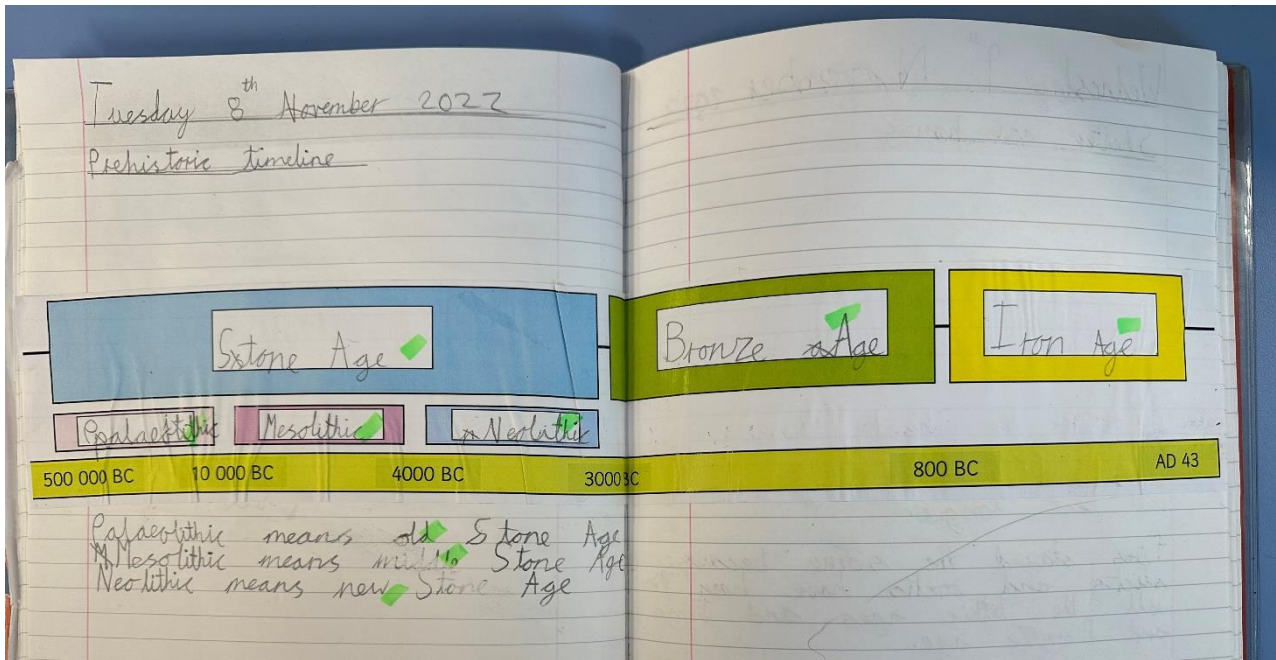 Tuesday 8th November 2022
Prehistoric timeline
Stone Age
Bronze Age
Iron Age
Palaeolithic
Mesolithic
Neolithic
500 000 BC 10 000 BC 4000 BC 3000 BC 800 BC AD 43
Palaeolithic means old Stone Age
Mesolithic means middle Stone Age
Neolithic means new Stone Age